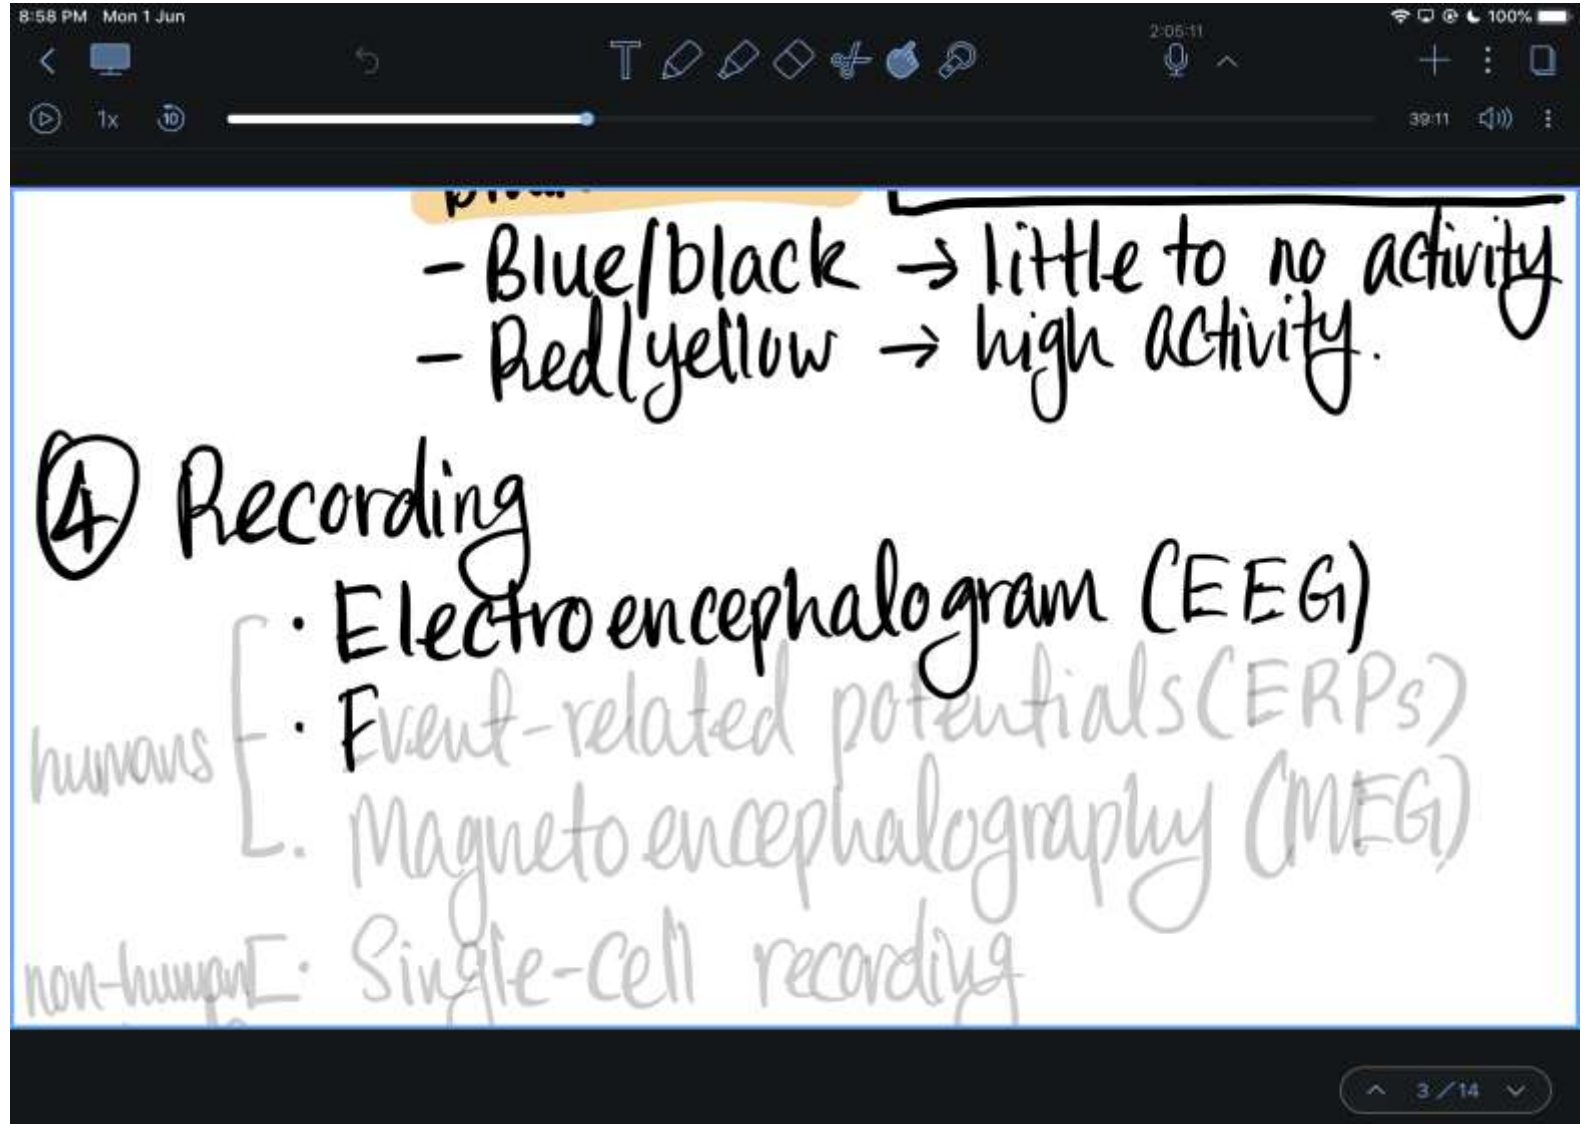 8:58 PM Mon 1 Jun 100%
2:05:11
1x 10 39:11
- Blue/black → little to no activity
- Red/yellow → high activity.
4 Recording
· Electroencephalogram (EEG)
humans · Event-related potentials (ERPs)
· Magnetoencephalography (MEG)
non-human · Single-cell recording
3/14